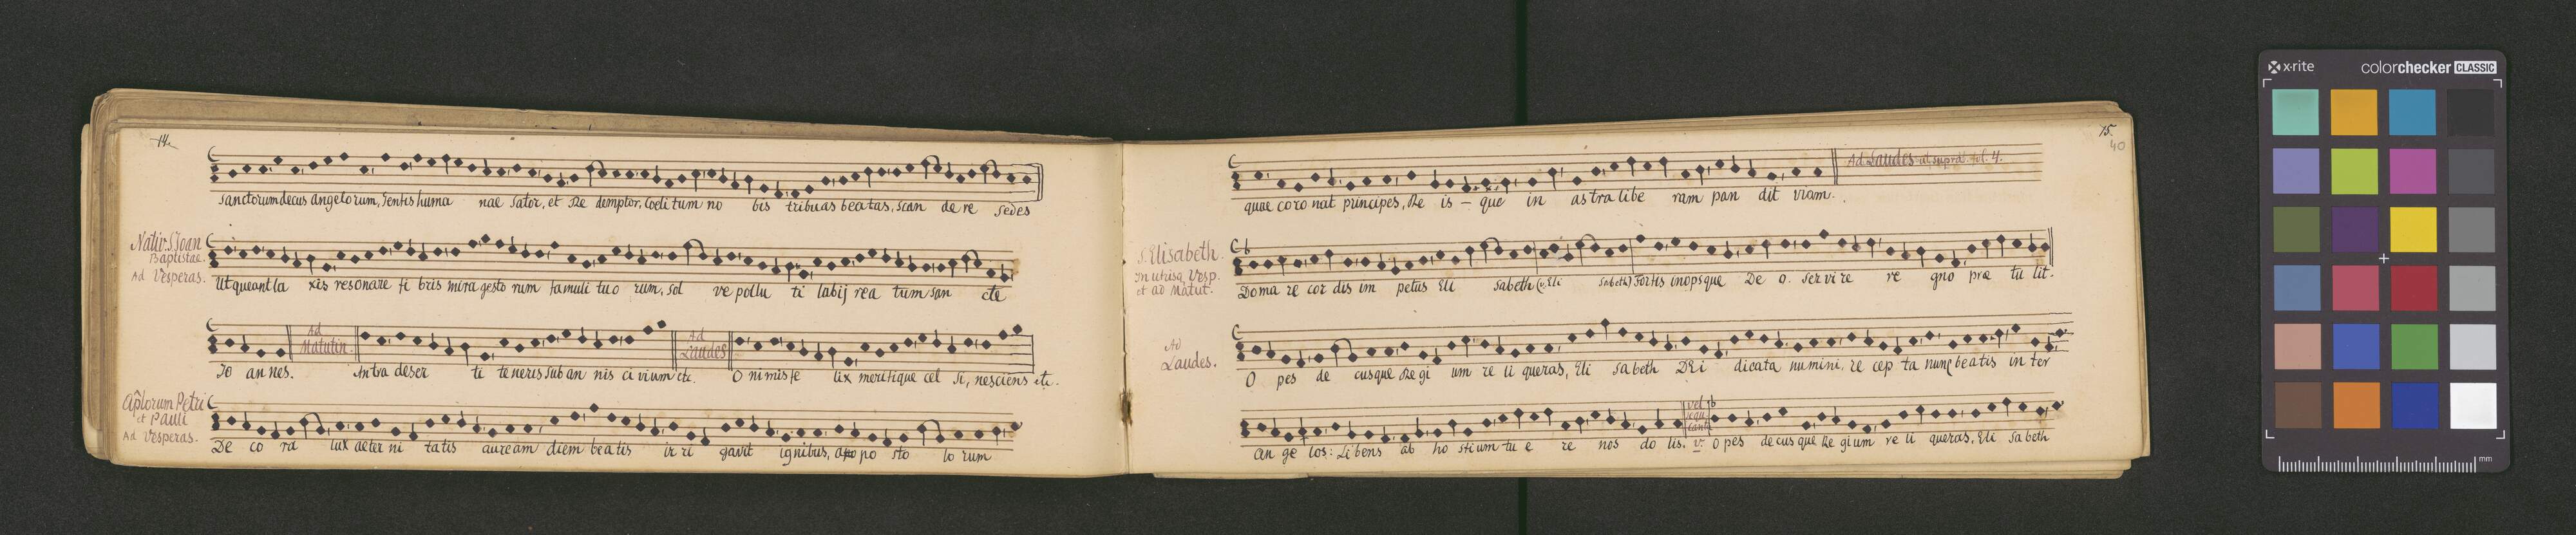 14.
sanctorum decus angelorum, Gentis huma nae Sator, et Re demptor, Coeli tum no bis tribuas beatas, scan de re sedes
Nativ. S Joan
Baptistae.
Ad Vesperas.
Ut queant la xis resonare fi bris mira gesto rum famuli tuo rum, Sol ve pollu ti labij rea tum san cte
Jo an nes.
Ad
Matutin.
Antra deser ti teneris sub an nis ci vium etc.
Ad
Laudes
O nimis fe lix meritique cel si, nesciens etc.
Aplorum Petri
et Pauli
Ad Vesperas.
De co ra lux aeter ni tatis auream diem beatis ir ri gavit ignibus, apo po sto lo rum
15.
40
quae coro nat principes, Re is - que in as tra libe ram pan dit viam.
Ad Laudes ut supra fol. 4.
S. Elisabeth.
In utrisq Vesp.
et ad Matut.
Doma re cor dis im petus Eli sabeth (v. Eli sabeth) Fortis inopsque De o. servi re re gno prae tu lit.
Ad
Laudes.
O pes de cusque Regi um re li queras, Eli sa beth DEi dicata numini, re cep ta nunc beatis in ter
an ge los: Libens ab ho stium tu e re nos do lis.
vel
sequ
cantu
O pes decus que Re gium re li queras, Eli sa beth
x·rite
colorchecker CLASSIC
mm